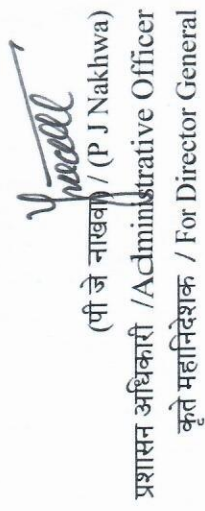 (पी जे नाखवा) / (P J Nakhwa)
प्रशासन अधिकारी /Administrative Officer
कृते महानिदेशक / For Director General